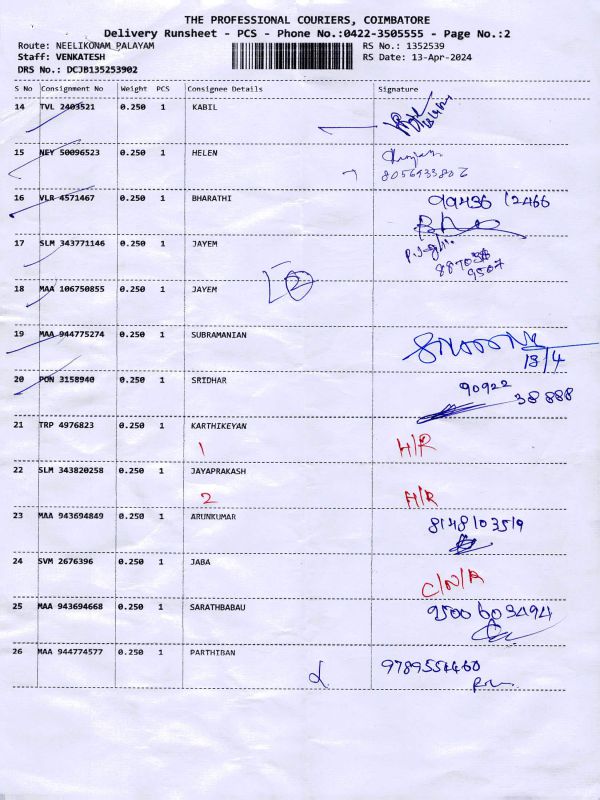 THE PROFESSIONAL COURIERS, COIMBATORE
Delivery Runsheet - PCS - Phone No.:0422-3505555 - Page No.:2
Route: NEELIKONAM PALAYAM RS No.: 1352539
Staff: VENKATESH RS Date: 13-Apr-2024
DRS No.: DCJB135253902
S No Consignment No Weight PCS Consignee Details Signature
14 TVL 2403521 0.250 1 KABIL
15 NEY 50096523 0.250 1 HELEN
8056133802
16 VLR 4571467 0.250 1 BHARATHI 99436 12466
17 SLM 343771146 0.250 1 JAYEM
887038
9507
18 MAA 106750855 0.250 1 JAYEM 2
19 MAA 944775274 0.250 1 SUBRAMANIAN
13/4
20 PON 3158940 0.250 1 SRIDHAR 90922 38888
21 TRP 4976823 0.250 1 KARTHIKEYAN
1 H/R
22 SLM 343820258 0.250 1 JAYAPRAKASH
2 H/R
23 MAA 943694849 0.250 1 ARUNKUMAR 8148103519
24 SVM 2676396 0.250 1 JABA
C/N/R
25 MAA 943694668 0.250 1 SARATHBABAU 9500603494
26 MAA 944774577 0.250 1 PARTHIBAN 9789554460